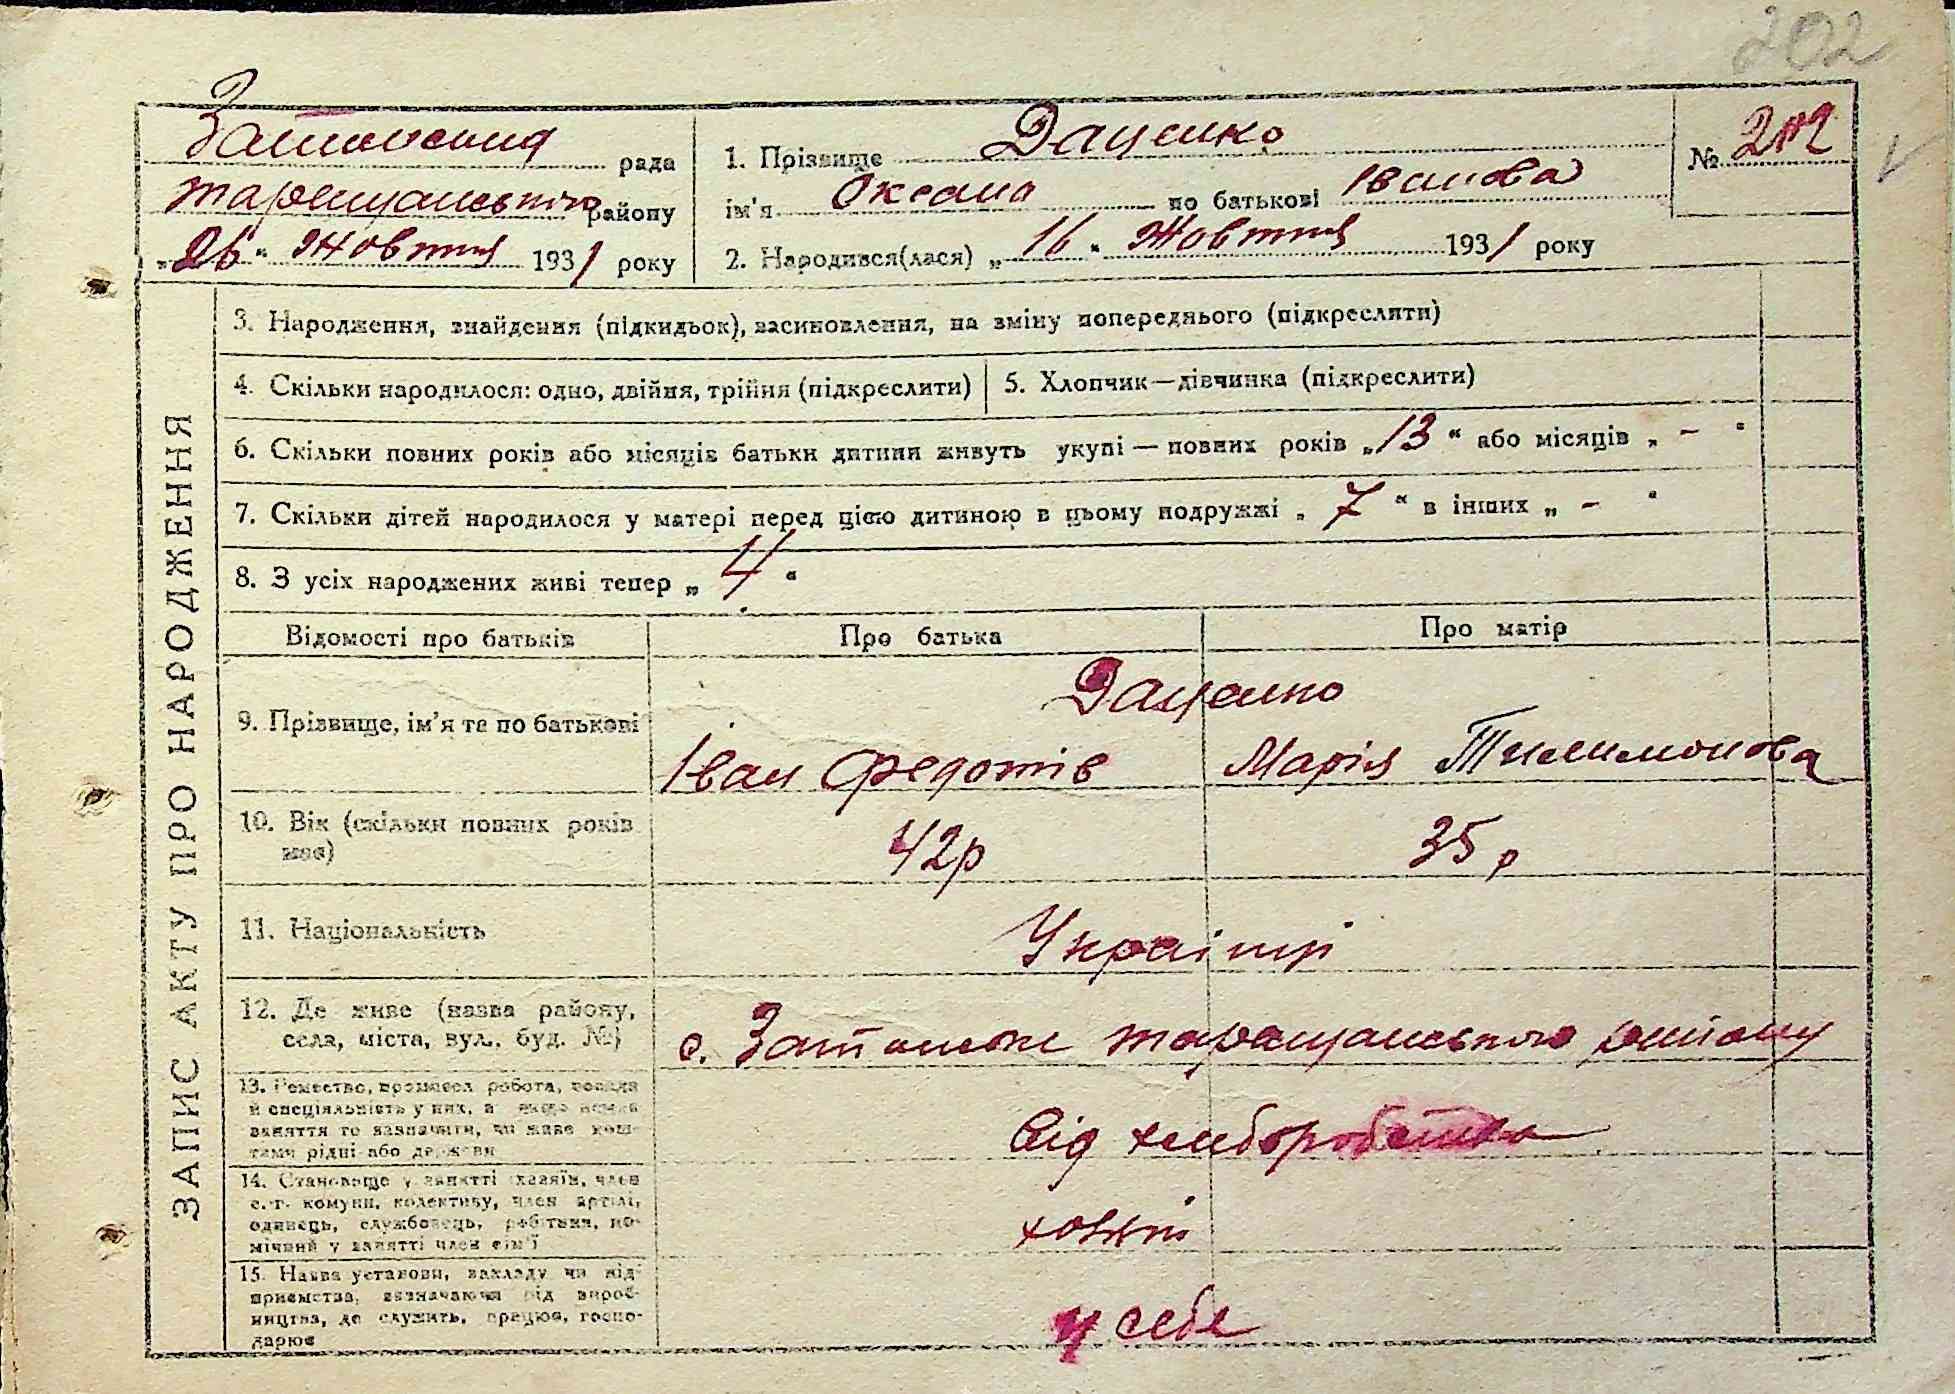 202
Затонська рада
Таращанського району
„26“ Жовтня 1931 року
1. Прізвище Даценко
ім'я Оксана по батькові Іванова
№ 202
2. Народився(лася) „16“ Жовтня 1931 року
ЗАПИС АКТУ ПРО НАРОДЖЕННЯ
3. Народження, знайдення (підкидьок), васиновлення, на зміну попереднього (підкреслити)
4. Скільки народилося: одно, двійня, трійня (підкреслити)
5. Хлопчик—дівчинка (підкреслити)
6. Скільки повних років або місяців батьки дитини живуть укупі — повних років „13“ або місяців „-“
7. Скільки дітей народилося у матері перед цією дитиною в цьому подружжі „7“ в інших „-“
8. З усіх народжених живі тепер „4“
Відомості про батьків Про батька Про матір
9. Прізвище, ім'я та по батькові
Даценко
Іван Федотів Марія Тилимонова
10. Вік (скільки повних років має)
42р 35 р
11. Національність
Українці
12. Де живе (назва району, села, міста, вул., буд. №)
с. Затонськ таращанського району
13. Ремество, промисел робота, посада
й спеціяльність у них, а якщо нема
заняття то зазначити, чи живе кош-
тами рідні або держави
Від хлиборобства
14. Становище у занятті (хазяїн, член
с.-г. комуни, колективу, член артілі,
одинець, службовець, робітник, по-
мічний у занятті член сім'ї
15. Назва установи, закладу чи під-
приємства, зазначаючи від вироб-
ництва, де служить, працює, госпо-
дарює
у себе